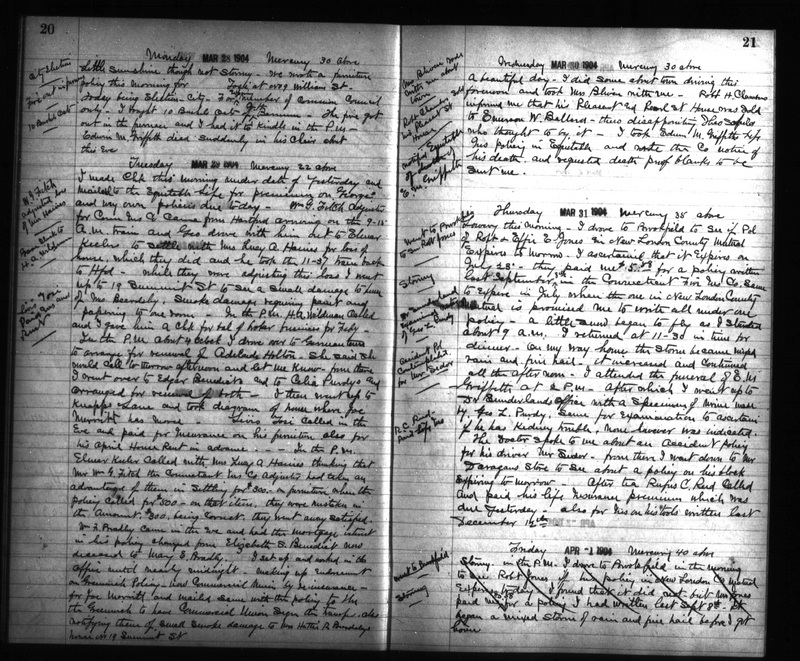 20
Monday MAR 28 1904 Mercury 30 above
little sunshine though not Stormy - We wrote a furniture
policy this morning for at No 9 William St.
today being Election City - For of Common Council
only - I bought 10 Bushels Oats - The fire got
out in the furnace and I had it to kindle in the P.M -
Edwin M. Griffith died suddenly in his Chair about
this Eve
City Election
Fire out in furnace
10 Bushels Oats
Tuesday MAR 29 1904 Mercury 22 above
I made Chk this morning under date of Yesterday and
mailed to the Equitable Life for premium on George's
and my own policies due to day - Wm G. Fitch Adjuster
for Conn Ins Co Came from Hartford arriving on the 9-15
A.M. train and Geo drove with him out to Elmer
Keelers to settle with Mrs Lucy A Haines for loss of
house, which they did and he took the 11-37 train back
to Htfd - While they were adjusting this loss I went
up to 19 Summit St to see a small damage to house
of Mrs Beardsley, Smoke damage requiring paint and
papering to one room - In the P.M. H.A. Wildman Called
and I gave him a Chk for bal of broker business for Feby -
In the P.M. about 4 oclock I drove over to Germantown
to arrange for renewal of Adelade Holton - She said she
would call to morrow afternoon and let me know - from there
I went over to Edgar Benedicts and to Celia Purdys and
arranged for renewal of both - I then went up to
Knapps Lane and took diagram of house where Joe
Merritt has moved - Tosi called in the
Eve and paid for Insurance on his furniture also for
his April House Rent in advance - - - In the P.M.
Elmer Keeler Called with Mrs Lucy A Haines thinking that
Mr Wm G. Fitch the Connecticut Ins Co Adjuster had taken an
advantage of them in settling for $300.- on furniture when the
policy called for $500 - on that item, they were mistaken in
the Amount, $300. being Correct, they went away satisfied.
Wm F. Bradley came in the Eve and had the mortgage interest
in his policy changed from Elizabeth S. Benedict now
deceased to Mary E. Bradley - I set up and worked in the
office until nearly midnight - making up Endorsement
on Greenwich Policy - now Commercial Union by reinsurance -
for Joe Merritt and mailed same with the policy to the
the Greenwich to have Commercial Union sign the transfer, also
notifying them of small smoke damage to Mrs Hattie R. Beardsleys
house No 19 Summit St
W.G. Fitch
adjusted loss
of Mrs Haines
H.A. Wildman
Tosi
Paid Ins and
Rent
21
Wednesday MAR 30 1904 Mercury 30 above
A beautiful day - I did some about town driving this
forenoon and took Mrs Bliven with me - Robt H Clawson
informed me that his Pleasant and Pearl St House was sold
to Emerson W. Ballard - thus disappointing Theo
who thought to by it - I took Edwin M. Griffiths Life
Ins policy in Equitable and wrote the Co notice of
his death and requested death proof blanks to be
sent me.
Mrs Bliven rode
with me about
town
Robt Clawson sold
his Pleasant St
House
notified Equitable
of death of
E. M. Griffith
Thursday MAR 31 1904 Mercury 38 above
Lowery this morning - I drove to Brookfield to see if Pol
of Robt & Effie E. Jones in New London County Mutual
Expires to morrow. I ascertained that it Expires on
July 23d - they paid me for a policy written
last September, in the Connecticut Fire Ins Co. Same
to Expire in July when the one in New London County
Mutual is promised me to write all under one
policy - A little snow began to fly as I started
about 9 A.M. I returned at 11-30 in time for
dinner - On my way home the Storm became mixed
rain and fine hail - it increased and continued
all the after noon - I attended the funeral of E. M.
Griffiths at 2 P.M. After which I went up to
Dr Sunderlands office with a Specimen of Urine made
by Geo L. Purdy, Same for examination to ascertain
if he has Kidney trouble, None however was indicated.
The Doctor spoke to me about an Accident policy
for his driver Mr Sedor - from there I went down to Mr
Daragans Store to see about a policy on his block
Expiring to morrow - After tea Rufus C. Reed Called
and paid his life Insurance premium which was
due Yesterday - also for Ins on his tools written last
December 14th
Went to Brookfield
to see Robt Jones
Stormy
Dr Sunderland
Examined Urine
of Geo L Purdy
Accident Pol
for Mr Sedor
R.C. Reed
Paid Life Ins
Friday APR 1 1904 Mercury 40 above
Stormy - in the P.M. I drove to Brookfield in the morning
to see Robt Jones if his policy in New London Co Mutual
Expires today - I found that it did not but Mr Jones
paid me for a policy I had written last Sept 8th - It
began a mixed Storm of rain and fine hail before I got
home
went to Brookfield
Stormy